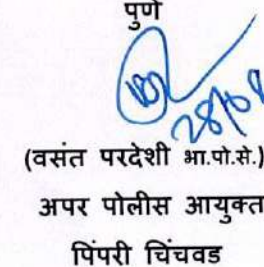 पुणे
28/08
(वसंत परदेशी भा.पो.से.)
अपर पोलीस आयुक्त
पिंपरी चिंचवड